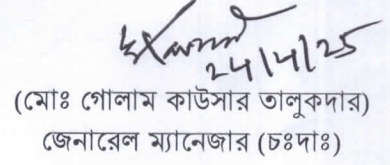 24/4/25
(মোঃ গোলাম কাউসার তালুকদার)
জেনারেল ম্যানেজার (চঃদাঃ)